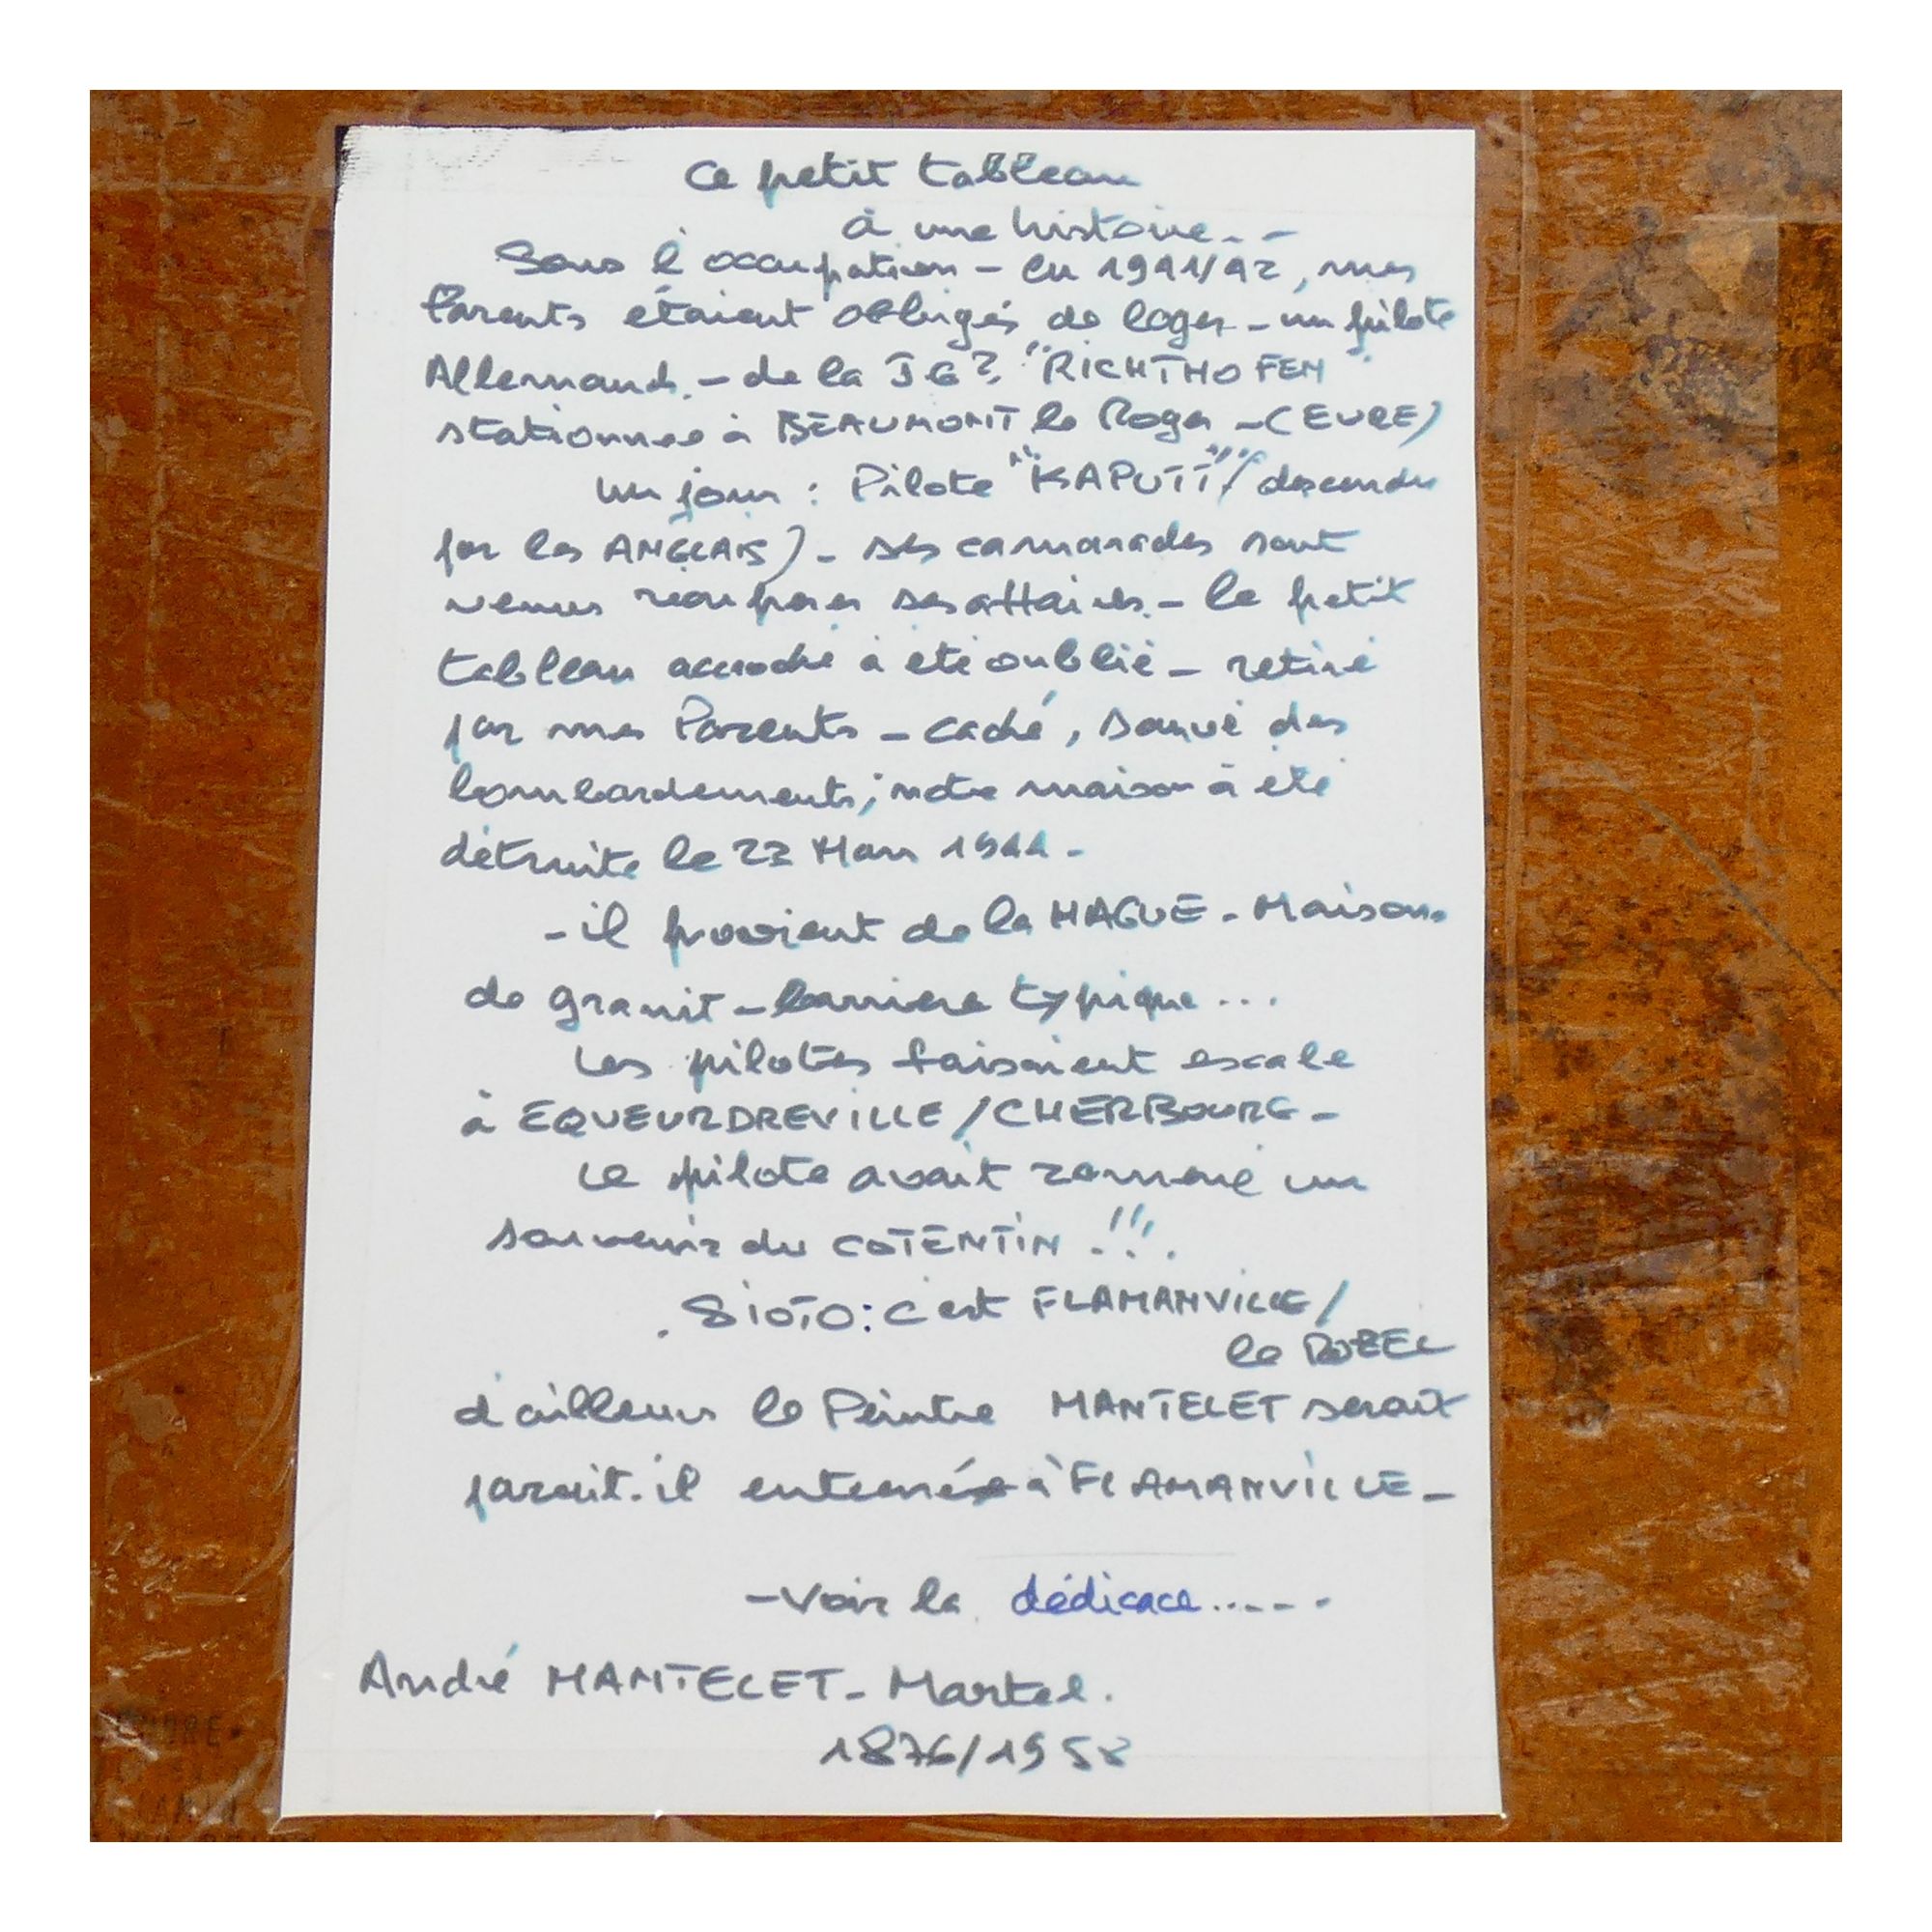 Ce petit tableau
à une histoire - -
Sous l'occupation - en 1941/42, mes
Parents étaient obligés de loger - un pilote
Allemand - de la JG2 "RICHTHOFEN"
stationnée à BEAUMONT le Roger - (EURE)
un jour : Pilote "KAPUTT" (descendu
par les ANGLAIS) - ses camarades sont
venus récupérer ses affaires - le petit
tableau accroché à été oublié - retiré
par mes Parents - caché, sauvé des
bombardements, notre maison à été
détruite le 22 Mars 1944 -
- il provient de la HAGUE - Maisons
de granit - barrière typique ...
Les pilotes faisaient escale
à EQUEURDREVILLE / CHERBOURG -
Le pilote avait ramené un
souvenir du COTENTIN !!!
. SIOTO : c'est FLAMANVILLE /
le ROZEL
d'ailleurs le Peintre MANTELET serait
parait-il enterré à FLAMANVILLE -
- Voir la dédicace .....
André MANTELET - Martel.
1876/1958